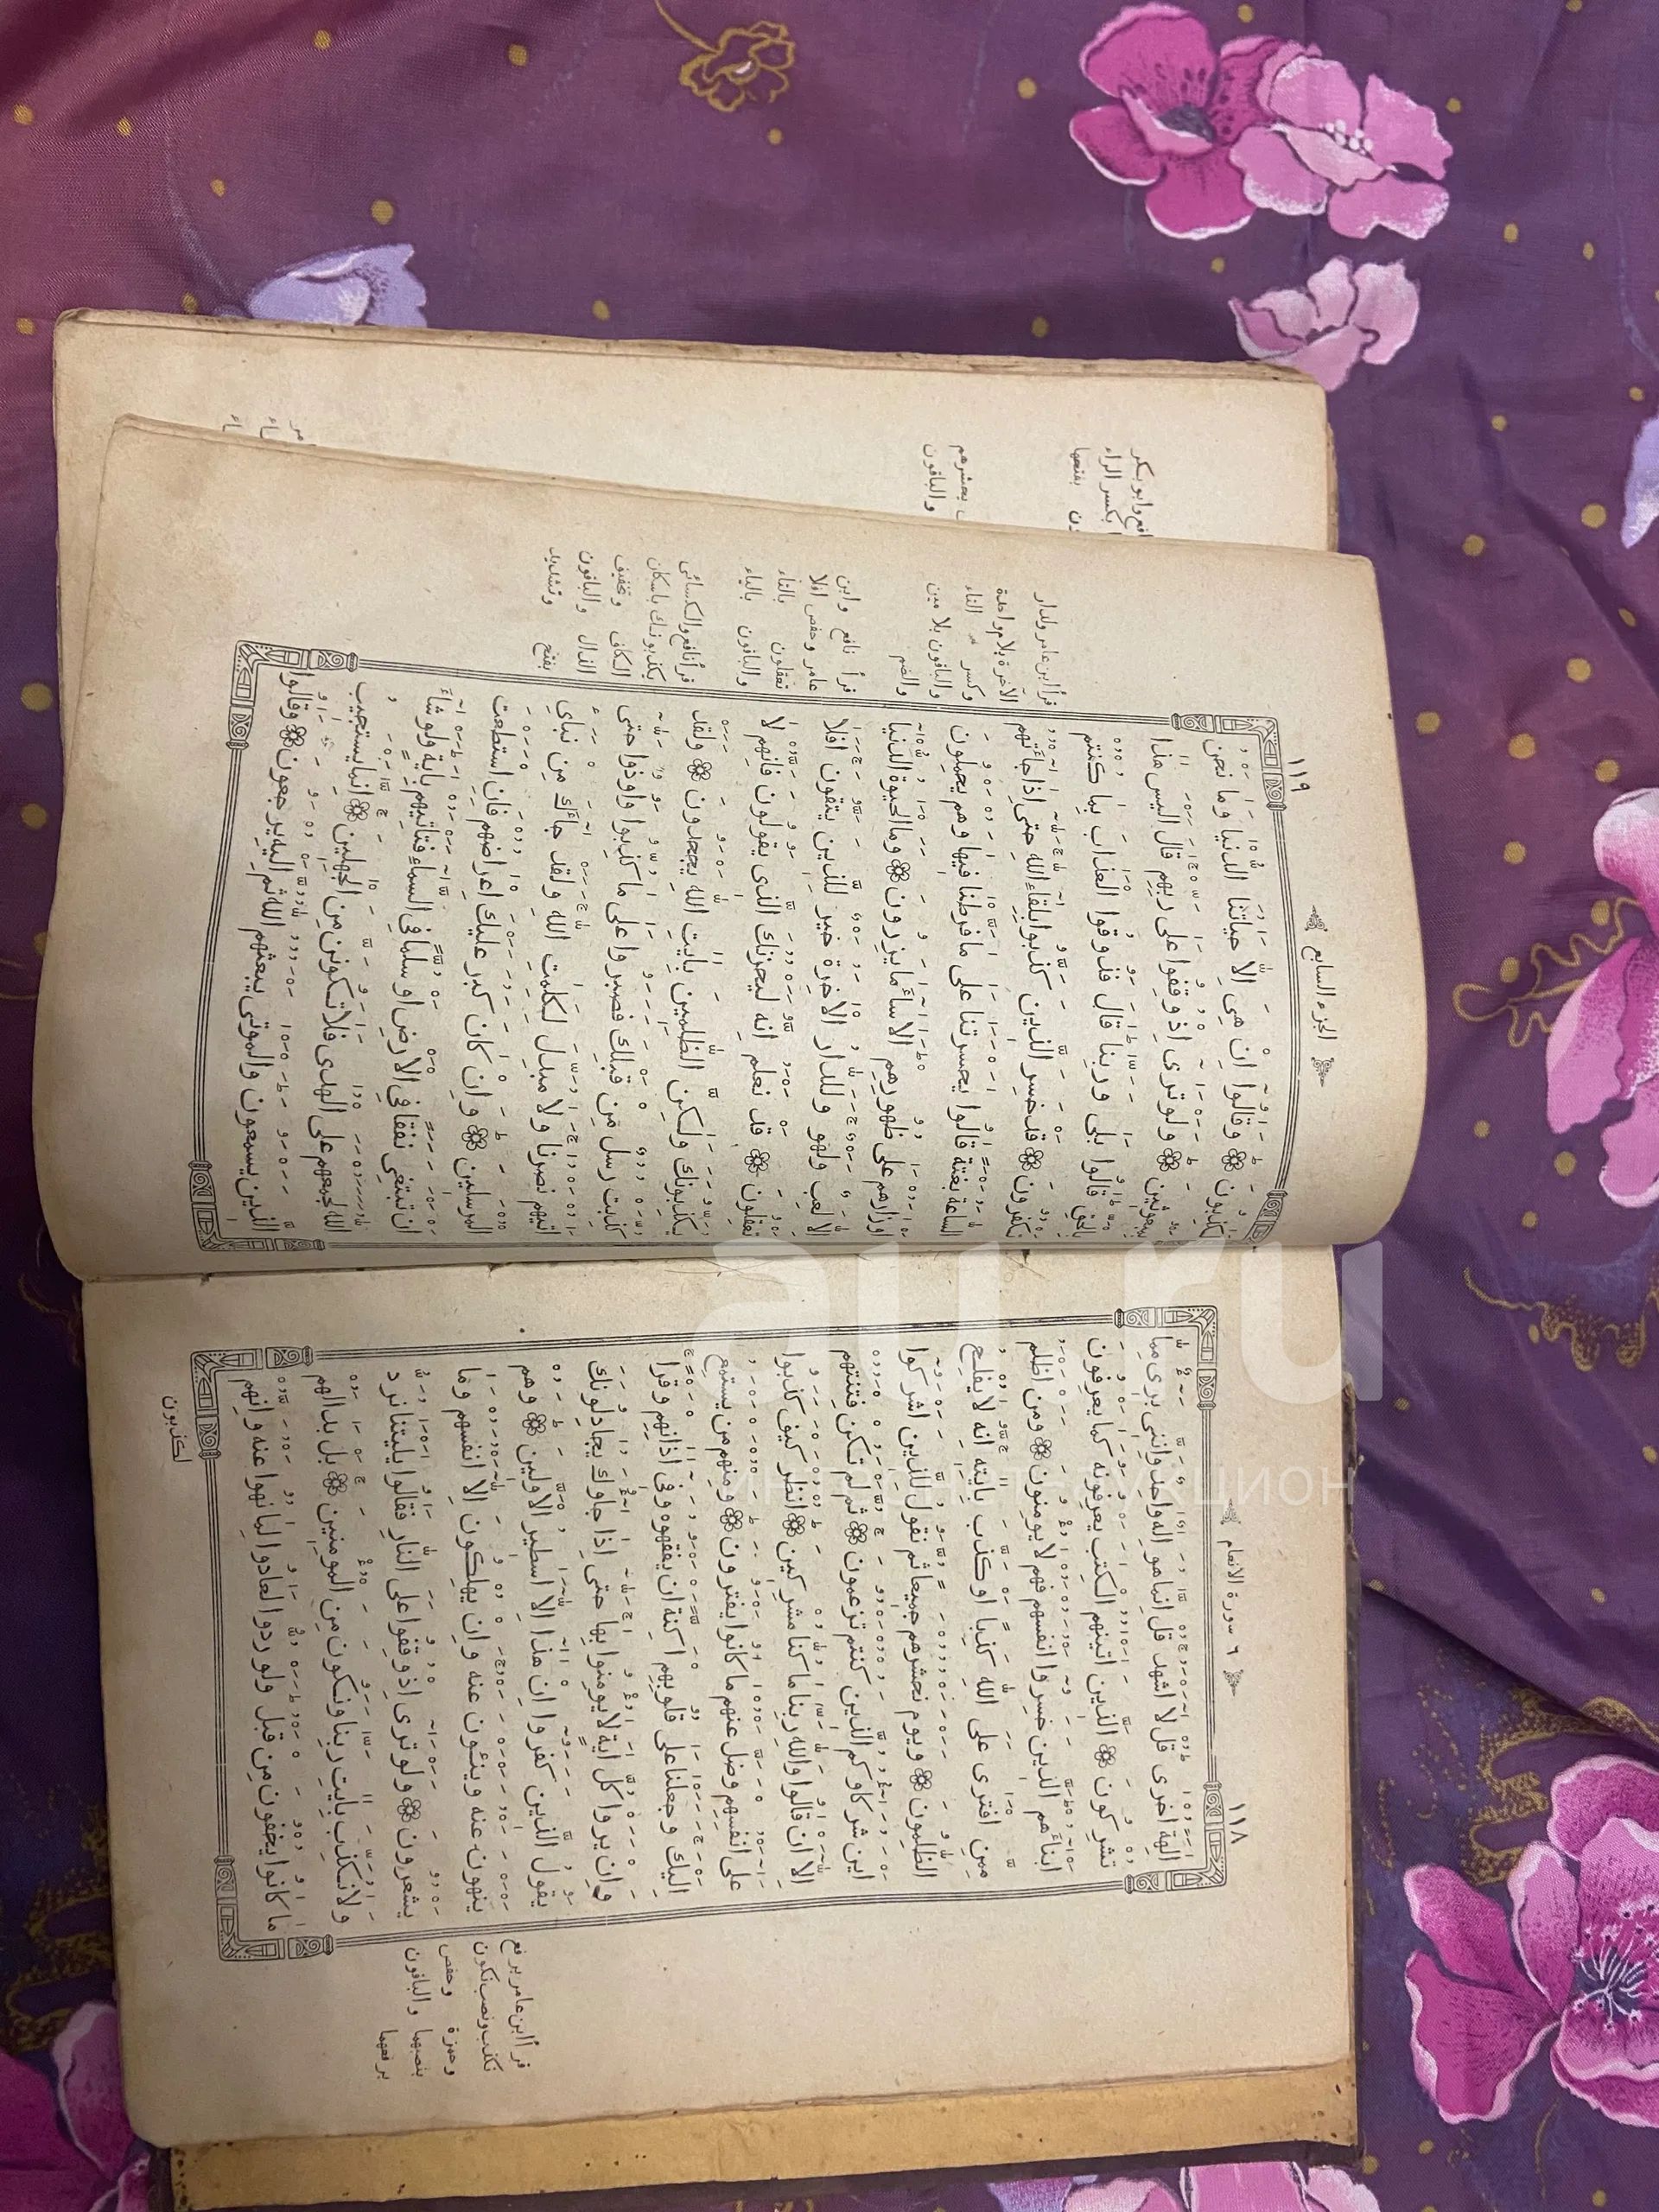 ١١٨
٦ سورة الانعام
الهة اخرى قل لا اشهد قل انما هو اله واحد وانني بري مما
تشركون ۞ الذين اتينهم الكتب يعرفونه كما يعرفون
ابناءهم الذين خسروا انفسهم فهم لا يومنون ۞ ومن اظلم
ممن افترى على الله كذبا او كذب بايته انه لا يفلح
الظلمون ۞ ويوم نحشرهم جميعا ثم نقول للذين اشركوا
اين شركاوكم الذين كنتم تزعمون ۞ ثم لم تكن فتنتهم
الا ان قالوا والله ربنا ما كنا مشركين ۞ انظر كيف كذبوا
على انفسهم وضل عنهم ما كانوا يفترون ۞ ومنهم من يستمع
اليك وجعلنا على قلوبهم اكنة ان يفقهوه وفى اذانهم وقرا
وان يروا كل اية لا يومنوا بها حتى اذا جاوك يجادلونك
يقول الذين كفروا ان هذا الا اسطير الاولين ۞ وهم
ينهون عنه وينئون عنه وان يهلكون الا انفسهم وما
يشعرون ۞ ولو ترى اذ وقفوا على النار فقالوا يليتنا نرد
ولا نكذب بايت ربنا ونكون من المومنين ۞ بل بدا لهم
ما كانوا يخفون من قبل ولو ردوا لعادوا لما نهوا عنه وانهم
لكذبون
قرأ ابن عامر برفع
نكذب ونصب نكون
وحمزة وحفص
بنصبهما والباقون
برفعهما
١١٩
الجزء السابع
لكذبون ۞ وقالوا ان هى الا حياتنا الدنيا وما نحن
بمبعوثين ۞ ولو ترى اذ وقفوا على ربهم قال اليس هذا
بالحق قالوا بلى وربنا قال فذوقوا العذاب بما كنتم
تكفرون ۞ قد خسر الذين كذبوا بلقاء الله حتى اذا جاءتهم
الساعة بغتة قالوا يحسرتنا على ما فرطنا فيها وهم يحملون
اوزارهم على ظهورهم الا ساء ما يزرون ۞ وما الحيوة الدنيا
الا لعب ولهو وللدار الاخرة خير للذين يتقون افلا
تعقلون ۞ قد نعلم انه ليحزنك الذى يقولون فانهم لا
يكذبونك ولكن الظلمين بايت الله يجحدون ۞ ولقد
كذبت رسل من قبلك فصبروا على ما كذبوا واوذوا حتى
اتيهم نصرنا ولا مبدل لكلمت الله ولقد جاءك من نباى
المرسلين ۞ وان كان كبر عليك اعراضهم فان استطعت
ان تبتغى نفقا فى الارض او سلما فى السماء فتاتيهم باية ولو شاء
الله لجمعهم على الهدى فلا تكونن من الجهلين ۞ انما يستجيب
الذين يسمعون والموتى يبعثهم الله ثم اليه يرجعون ۞ وقالوا
قرأ ابن عامر ولدار
الآخرة بلام واحدة
وكسر التاء
والباقون بلا مين
والضم
قرأ نافع وابن
عامر وحفص افلا
تعقلون بالتاء
والباقون بالياء
قرأ نافع والكسائى
يكذبونك باسكان
الكاف وتخفيف
الذال والباقون
بفتح وتشديد
افع وابو بكر
بكسر الراء
ون بفتحها
يحشرهم
والباقون
au.ru
ИНТЕРНЕТ-АУКЦИОН